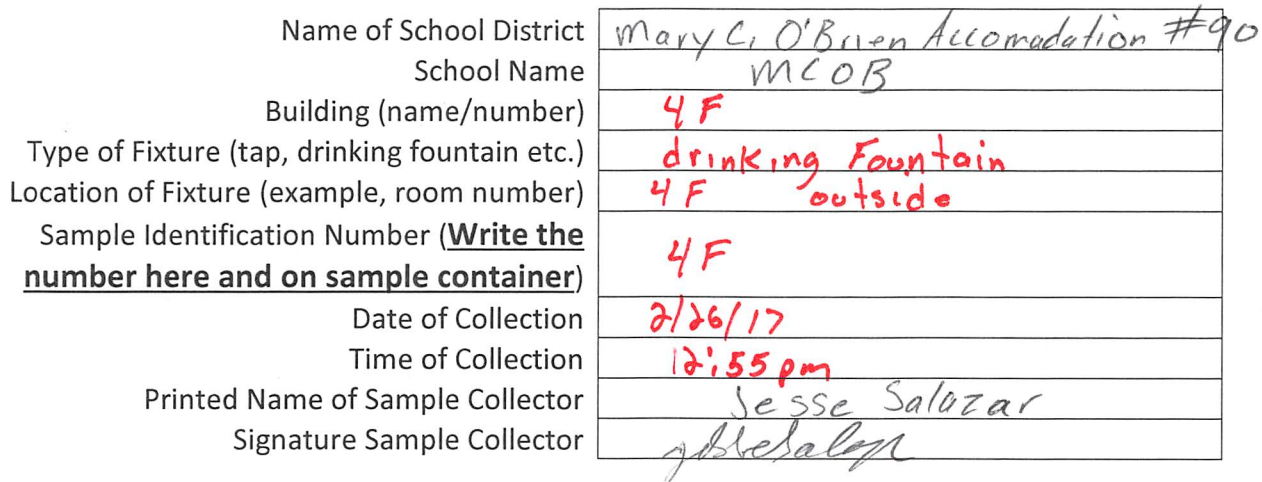 Name of School District Mary C. O'Brien Accomadation #90
School Name MCOB
Building (name/number) 4F
Type of Fixture (tap, drinking fountain etc.) drinking Fountain
Location of Fixture (example, room number) 4F outside
Sample Identification Number (Write the
number here and on sample container) 4F
Date of Collection 2/26/17
Time of Collection 12:55 pm
Printed Name of Sample Collector Jesse Salazar
Signature Sample Collector